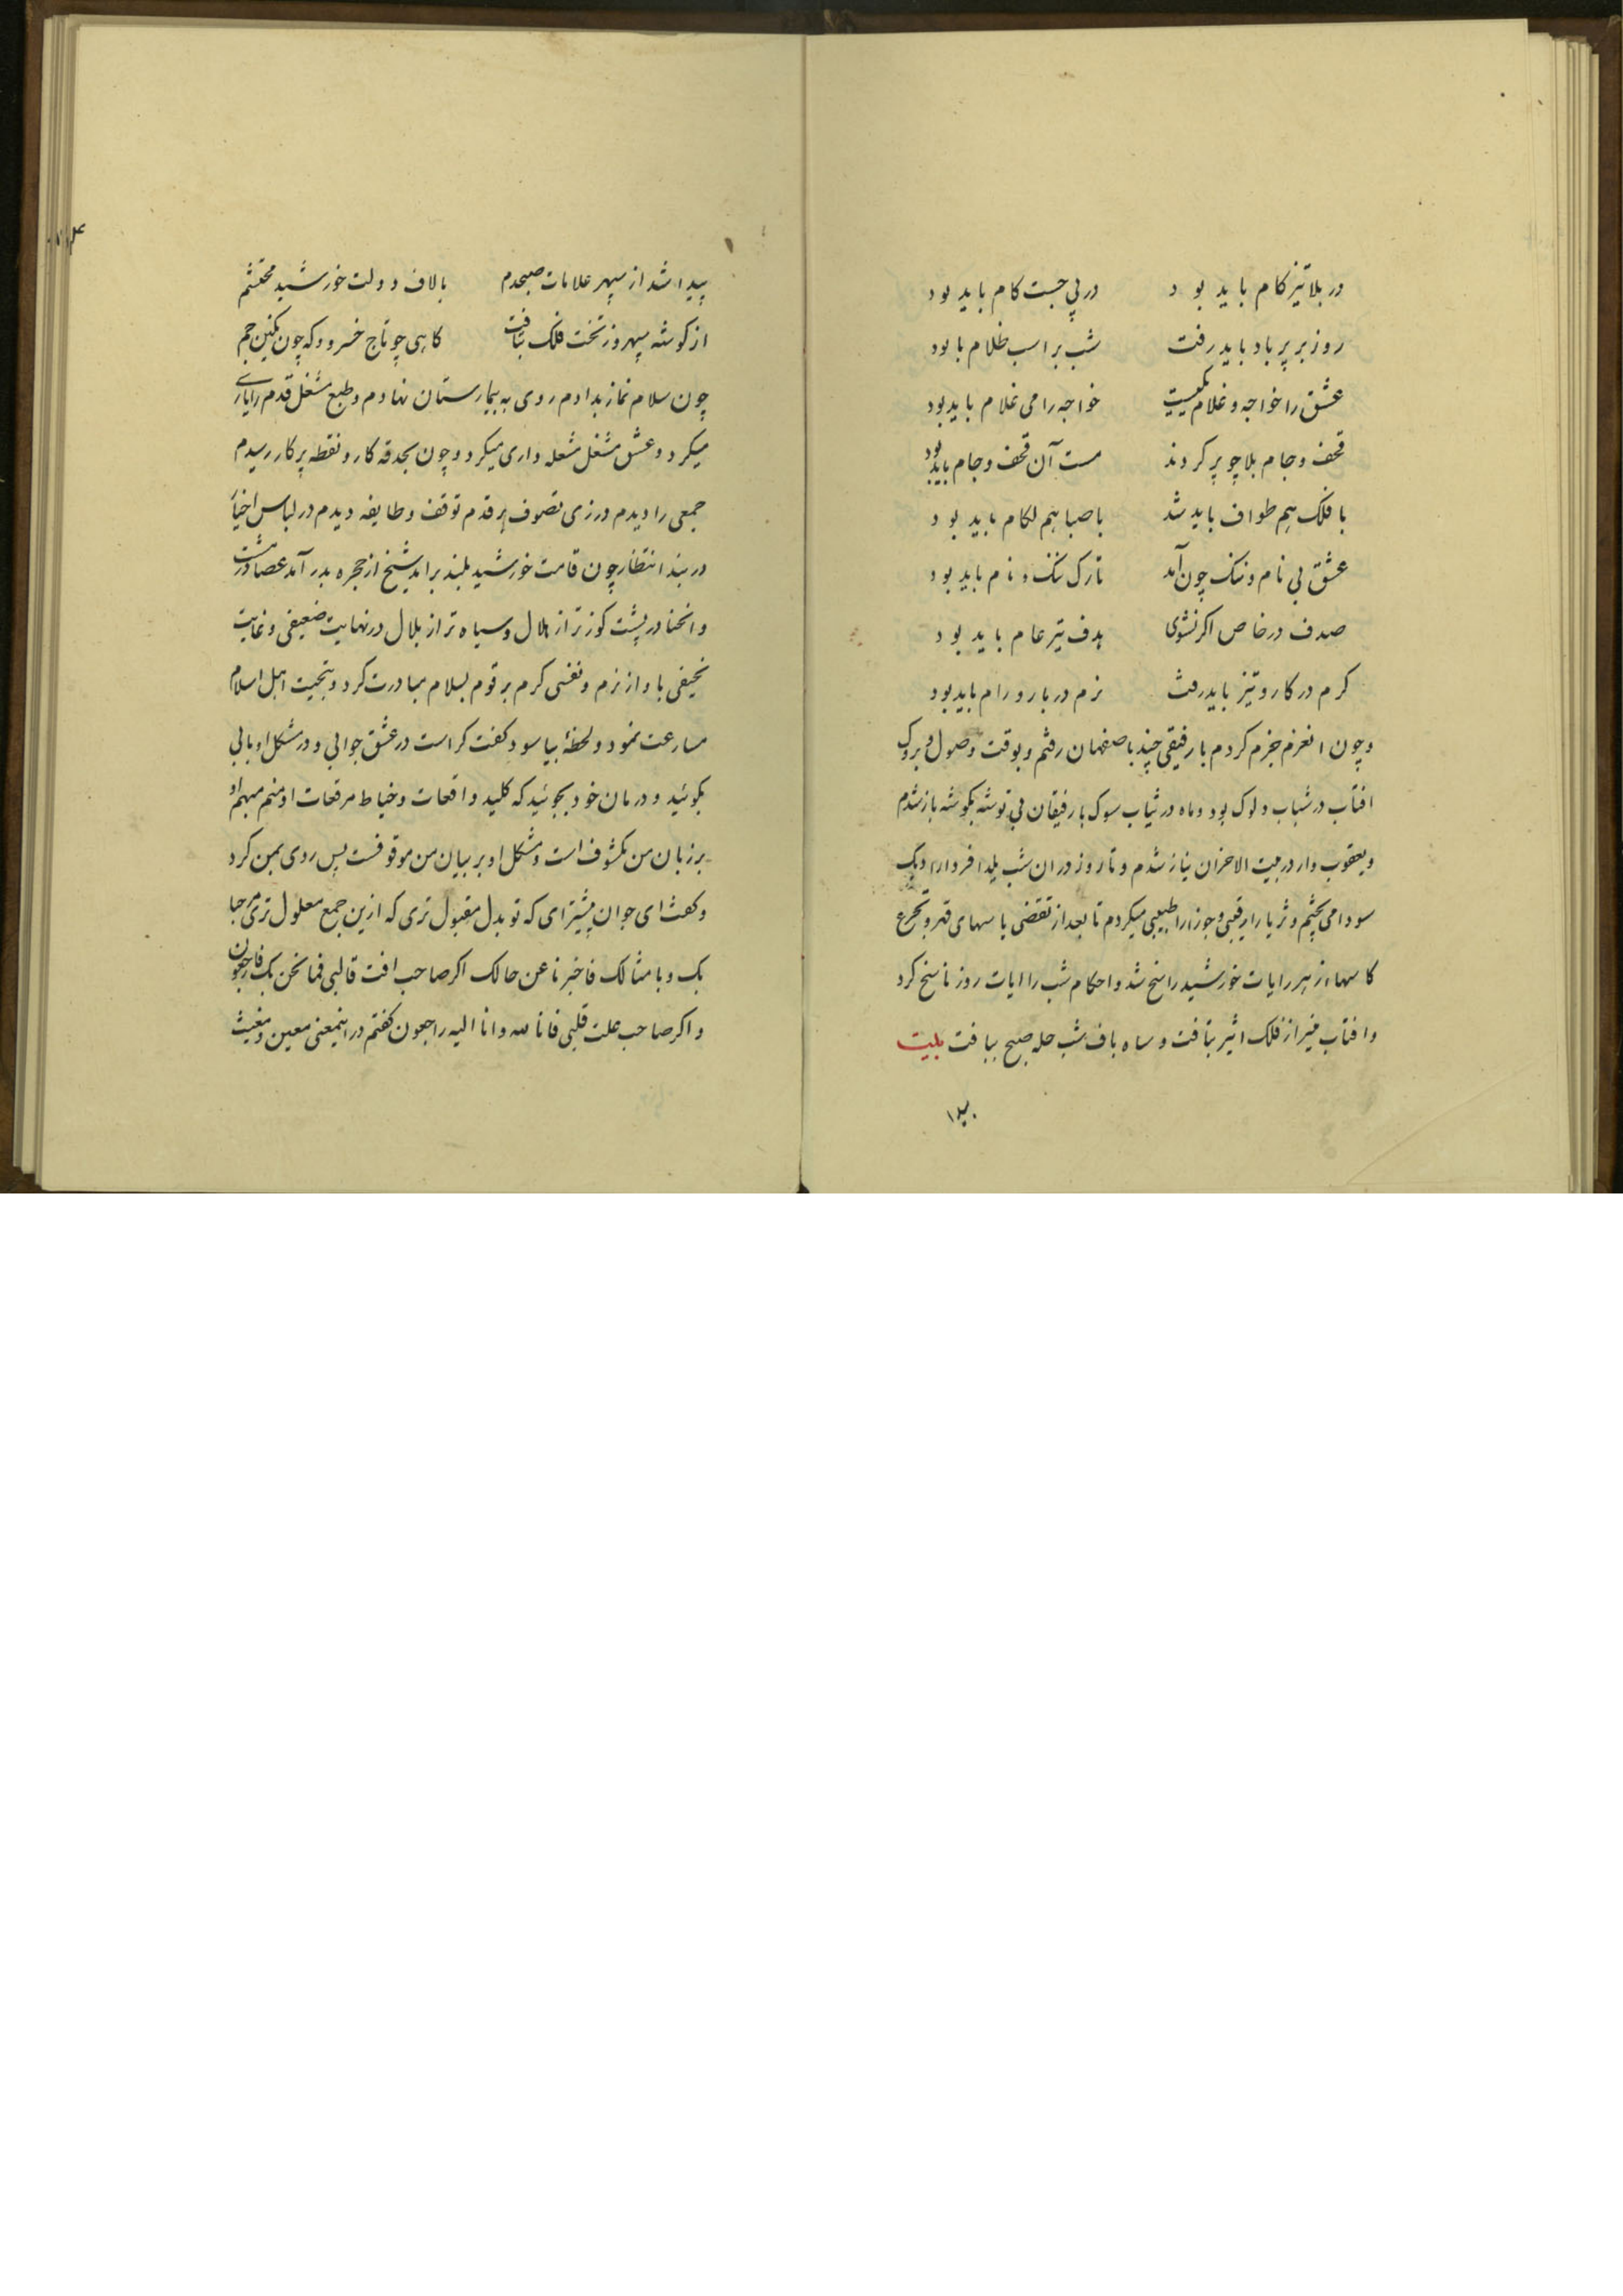 در بلا تیز کام باید بود در پی جست کام باید بود
روز بر پر باد باید رفت شب بر اسب ظلام با بود
عشق را خواجه و غلام یکیست خواجه را می غلام باید بود
قحف و جام بلا چو پر کردند مست آن قحف و جام باید بود
با فلک هم طواف باید شد با صبا هم لکام باید بود
عشق بی نام و ننک چون آمد تارک ننک و نام باید بود
صدف در خاص اکر نشوی هدف تیر عام باید بود
کرم در کار و تیز باید رفت نرم در بار و رام باید بود
و چون انعزم جزم کردم با رفیقی چند باصفهان رفتم و بوقت وصول و بروک
افتاب در شباب دلوک بود و ماه در ثیاب سوک با رفیقان بی توشه بکوشه باز شدم
و یعقوب وار در بیت الاحزان نیاز شدم و تا روز دران شب یلدا فردا را دیک
سودا می پختم و ثریا را رقیبی و جوزا را طبیبی میکردم تا بعد از تقضی یاسهای قهر و تجرع
کاسها از هر رایات خورشید راسخ شد و احکام شب را ایات روز ناسخ کرد
و افتاب منیر از فلک اثیر بتافت و ساه باف شب حله صبح ببافت بیت
پیدا
پیدا شد از سپهر علامات صبحدم بالاف دولت خورشید محتشم
از کوشه سپهر و ز تخت فلک بتافت کاهی چو تاج خسرو و که چون نکین جم
چون سلام نماز بدادم روی به بیمارستان نهادم و طبع مشغل قدم را یاری
میکرد و عشق مشغل شعله داری میکرد و چون بحدقه کار و نقطه پرکار رسیدم
جمعی را دیدم در زی تصوف بر قدم توقف و طایفه دیدم در لباس اخیار
در بند انتظار چون قامت خورشید بلند براید شیخ از حجره بدر آمد عصا در مشت
و انحنا در پشت کوزتر از هلال و سیاه تر از بلال در نهایت ضعیفی و غایت
نحیفی باواز نرم و نفسی کرم بر قوم بسلام مبادرت کرد و بتحیت اهل اسلام
مسارعت نمود و لحظۀ بیاسود کفت کراست در عشق جوابی و در مشکل او بابی
بکوئید و درمان خود بجوئید که کلید واقعات و خیاط مرقعات او منم مبهم او
بر زبان من مکشوف است و مشکل او بر بیان من موقوفست پس روی بمن کرد
و کفت ای جوان پیشتر ای که تو بدل مقبول تری که ازین جمع معلول تری مرحبا
بک و بامثالک فاخبرنا عن حالک اکر صاحب افت قالبی فما نحن بک فاجعون
و اکر صاحب علت قلبی فانا لله و انا الیه راجعون کفتم در اینمعنی معین و مغیث